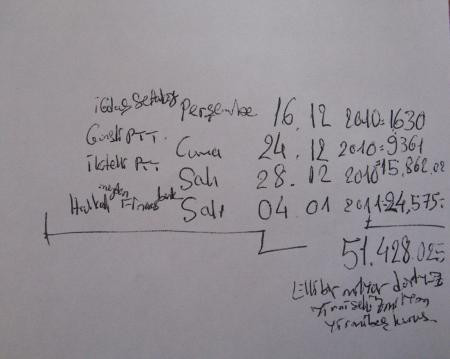 Perşembe 16.12 2010=1630
Güneşli PTT. Cuma 24.12 2010=9361
İkitelli PTT Salı 28.12 2010=15,862.02
Halkalı Finans bank Salı 04.01 2011=24,575=
51.428.025
Ellibir milyar dörtyüz
yirmisekiz milyon
yirmibeş kuruş